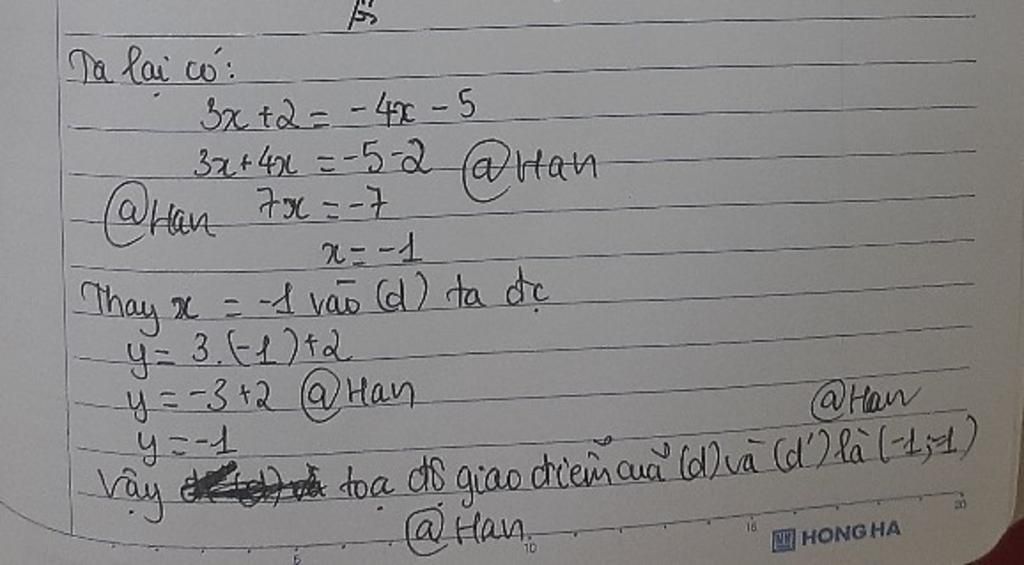 Ta lại có:
3x + 2 = - 4x - 5
3x + 4x = -5 -2 @Han
@Han 7x = -7
x = -1
Thay x = -1 vào (d) ta đc
y = 3.(-1)+2
y = -3+2 @Han
@Han
y = -1
Vậy toạ độ giao điểm của (d) và (d') là (-1;-1)
@Han
5 10 15 20
HONG HA